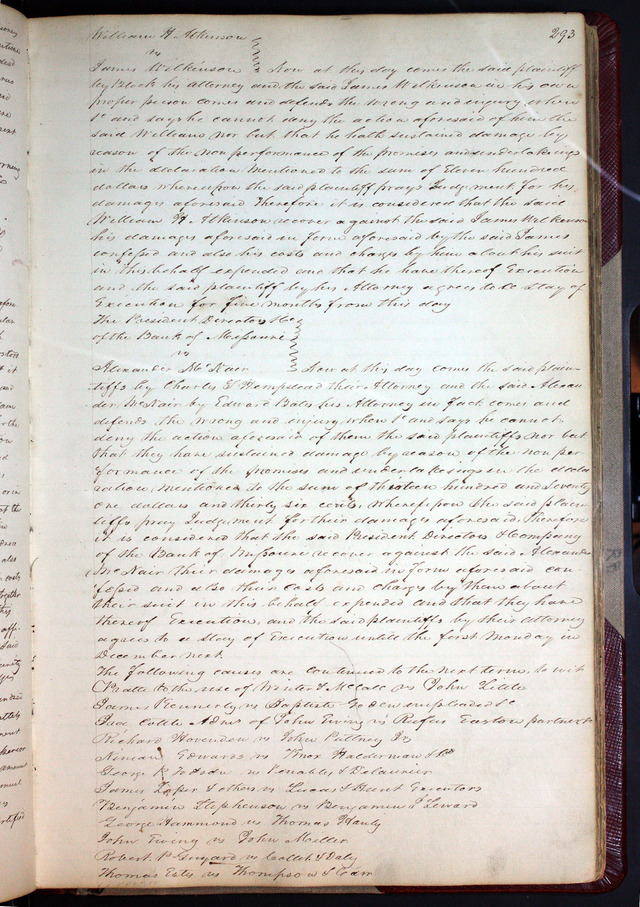 293
William H Atkinson
vs
James Wilkinson Now at this day comes the said plaintiff
by Block his Attorney and the said James Wilkinson in his own
proper person comes and defends the wrong and injury when
&c and says he cannot deny the action aforesaid of him the
said William nor but that he hath sustained damage by
reason of the non performance of the promises and undertakings
in the declaration mentioned to the sum of Eleven hundred
dollars whereupon the said plaintiff prays Judgment for his
damages aforesaid Therefore it is considered that the said
William H. Atkinson recover against the said James Wilkinson
his damages aforesaid in form aforesaid by the said James
confessed and also his costs and charges by him about his suit
in this behalf expended and that he have thereof Execution
and the said plaintiff by his Attorney agrees to a Stay of
Execution for five months from this day
The President Directors &Co
of the Bank of Missouri
vs
Alexander McNair Now at this day comes the said plain-
tiffs by Charles S Hempstead their Attorney and the said Alexan
der McNair by Edward Bates his Attorney in fact comes and
defends the wrong and injury when &c and says he cannot
deny the action aforesaid of them the said plaintiffs nor but
that they have sustained damage by reason of the non per
formance of the promises and undertakings in the decla
ration mentioned to the sum of thirteen hundred and seventy
one dollars and thirty six cents, whereupon the said plain
tiffs pray Judgement for their damages aforesaid. Therefore
it is considered that the said President Directors & Company
of the Bank of Missouri recover against the said Alexander
McNair their damages aforesaid in form aforesaid con
fessed and also their costs and charges by them about
their suit in this behalf expended and that they have
thereof Execution, and the said plaintiffs by their attorney
agrees to a stay of Execution until the first Monday in
December next.
The following causes are continued to the next term, to wit
Pratte to the use of vs John Little
James Kennerly vs Baptiste impleaded &c
Admr of John Ewing vs Rufus Easton partner
Richard Hovendon vs John Pittney Jr
Ninian Edwards vs Knox Halderman &
George vs Venables & Delaurier
James & others vs Lucas & Hunt Executors
Benjamin Stephenson vs Benjamin
George Hammond vs Thomas Hanly
John Ewing vs John Miller
Robert vs & Daly
Thomas Estes vs Thompson &